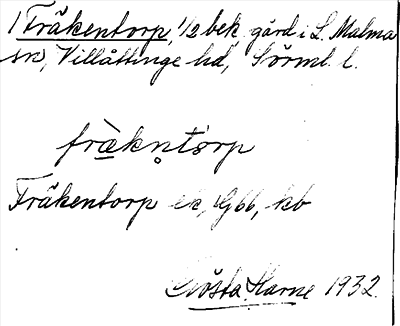 1 Fräkentorp, 1/2 bek. gård i L. Malma
sn, Villåttinge hd, Sörml. l.
fràkn̥tórp
Fräkentorp ek, G66, kb
Gösta Harne 1932.